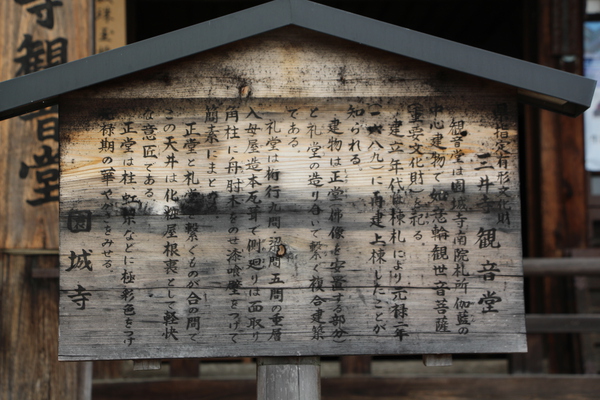 県指定有形文化財
三井寺観音堂
観音堂は園城寺南院札所伽藍の
中心建物で如意輪観世音菩薩
(重要文化財)を祀る。
建立年代は棟札により元禄二年
(一六八九)に再建上棟したことが
知られる。
建物は正堂(仏像を安置する部分)
と礼堂の造り合いで繋ぐ複合建築
である。
礼堂は桁行 間、 間五間の重層
入母屋造本瓦葺で側廻りは面取り
角柱に舟肘木をのせ漆喰壁をつけて
簡素にまとめ
正堂と礼堂 繋ぐものが合の間で
この天井は化粧屋根裏として軽快
な意匠である。
正堂は柱、虹梁などに極彩色をつけ
元禄期の華やかさをみせる。
園城寺
寺観音堂